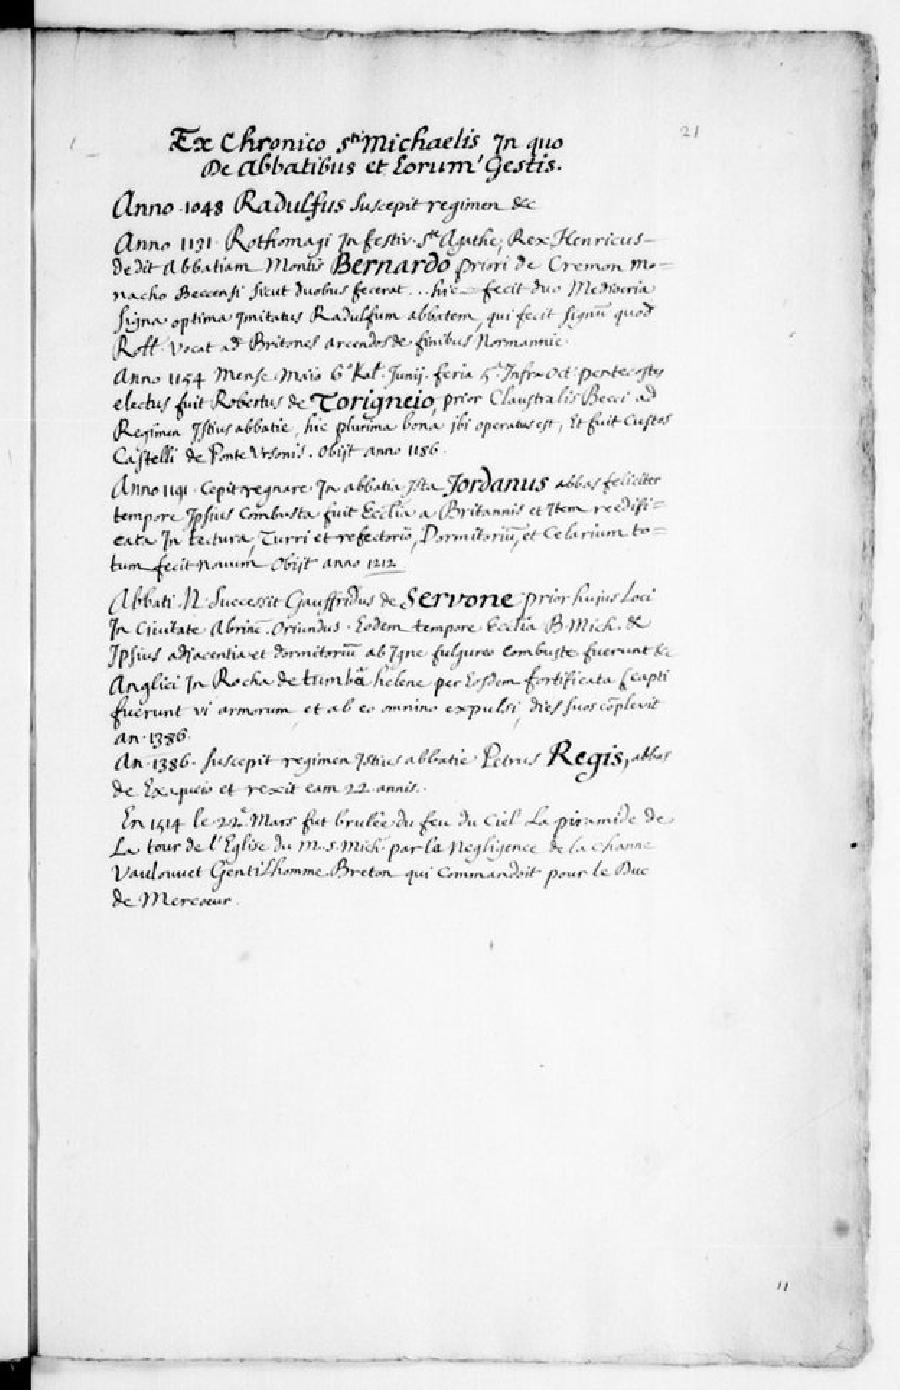 21
Ex Chronico Sti Michaelis In quo
De Abbatibus et Eorum Gestis.
Anno 1048 Radulfus Suscepit regimen &c
Anno 1131 Rothomagi In festiv. Ste Agathe, Rex Henricus
dedit Abbatiam Montis Bernardo priori de Cremon mo=
nacho Beccensi sicut duobus fecerat .. hic fecit duo Mediocria
signa optima Imitatus Radulfum abbatem, qui fecit signū quod
Roll. Vocat ad Britones arcendos de finibus Normannie.
Anno 1154 Mense Maio 6° Kal. Junij. feria 5a Infra Oct. pentecostes
electus fuit Robertus de Torigneio, prior Claustralis Becci ad
Regimen Istius abbatie, hic plurima bona ibi operatus est, Et fuit Custos
Castelli de Ponte Ursonis. Obijt anno 1186.
Anno 1191. Cepit regnare In abbatia Ista Jordanus abbas feliciter
tempore Ipsius Combusta fuit Ecclia a Britannis et Item reedifi=
cata In tectura, Turri et refectorio, Dormitoriū, et Celarium to=
tum fecit novum Obijt anno 1212
Abbati N. Successit Gauffridus de Servone prior hujus Loci
In Civitate Abrinc. Oriundus. Eodem tempore Ecclia B. Mich. &
Ipsius adjacentia et dormitoriū ab Igne fulgureo combuste fuerunt &c
Anglici In Rocha de tumbā helene per Eosdem fortificata capti
fuerunt vi armorum et ab eo omnino expulsi, dies suos cōplevit
an. 1386.
An. 1386. Suscepit regimen Istius abbatie Petrus Regis, abbas
de Exaquio et rexit eam 22 annis.
En 1514 le 22e Mars fut brulée du feu du Ciel La piramide de
La tour de l'Eglise du M. S. Mich. par la Negligence de la
Vaulouvet Gentilhomme Breton qui Commandoit pour le Duc
de Mercoeur.
11